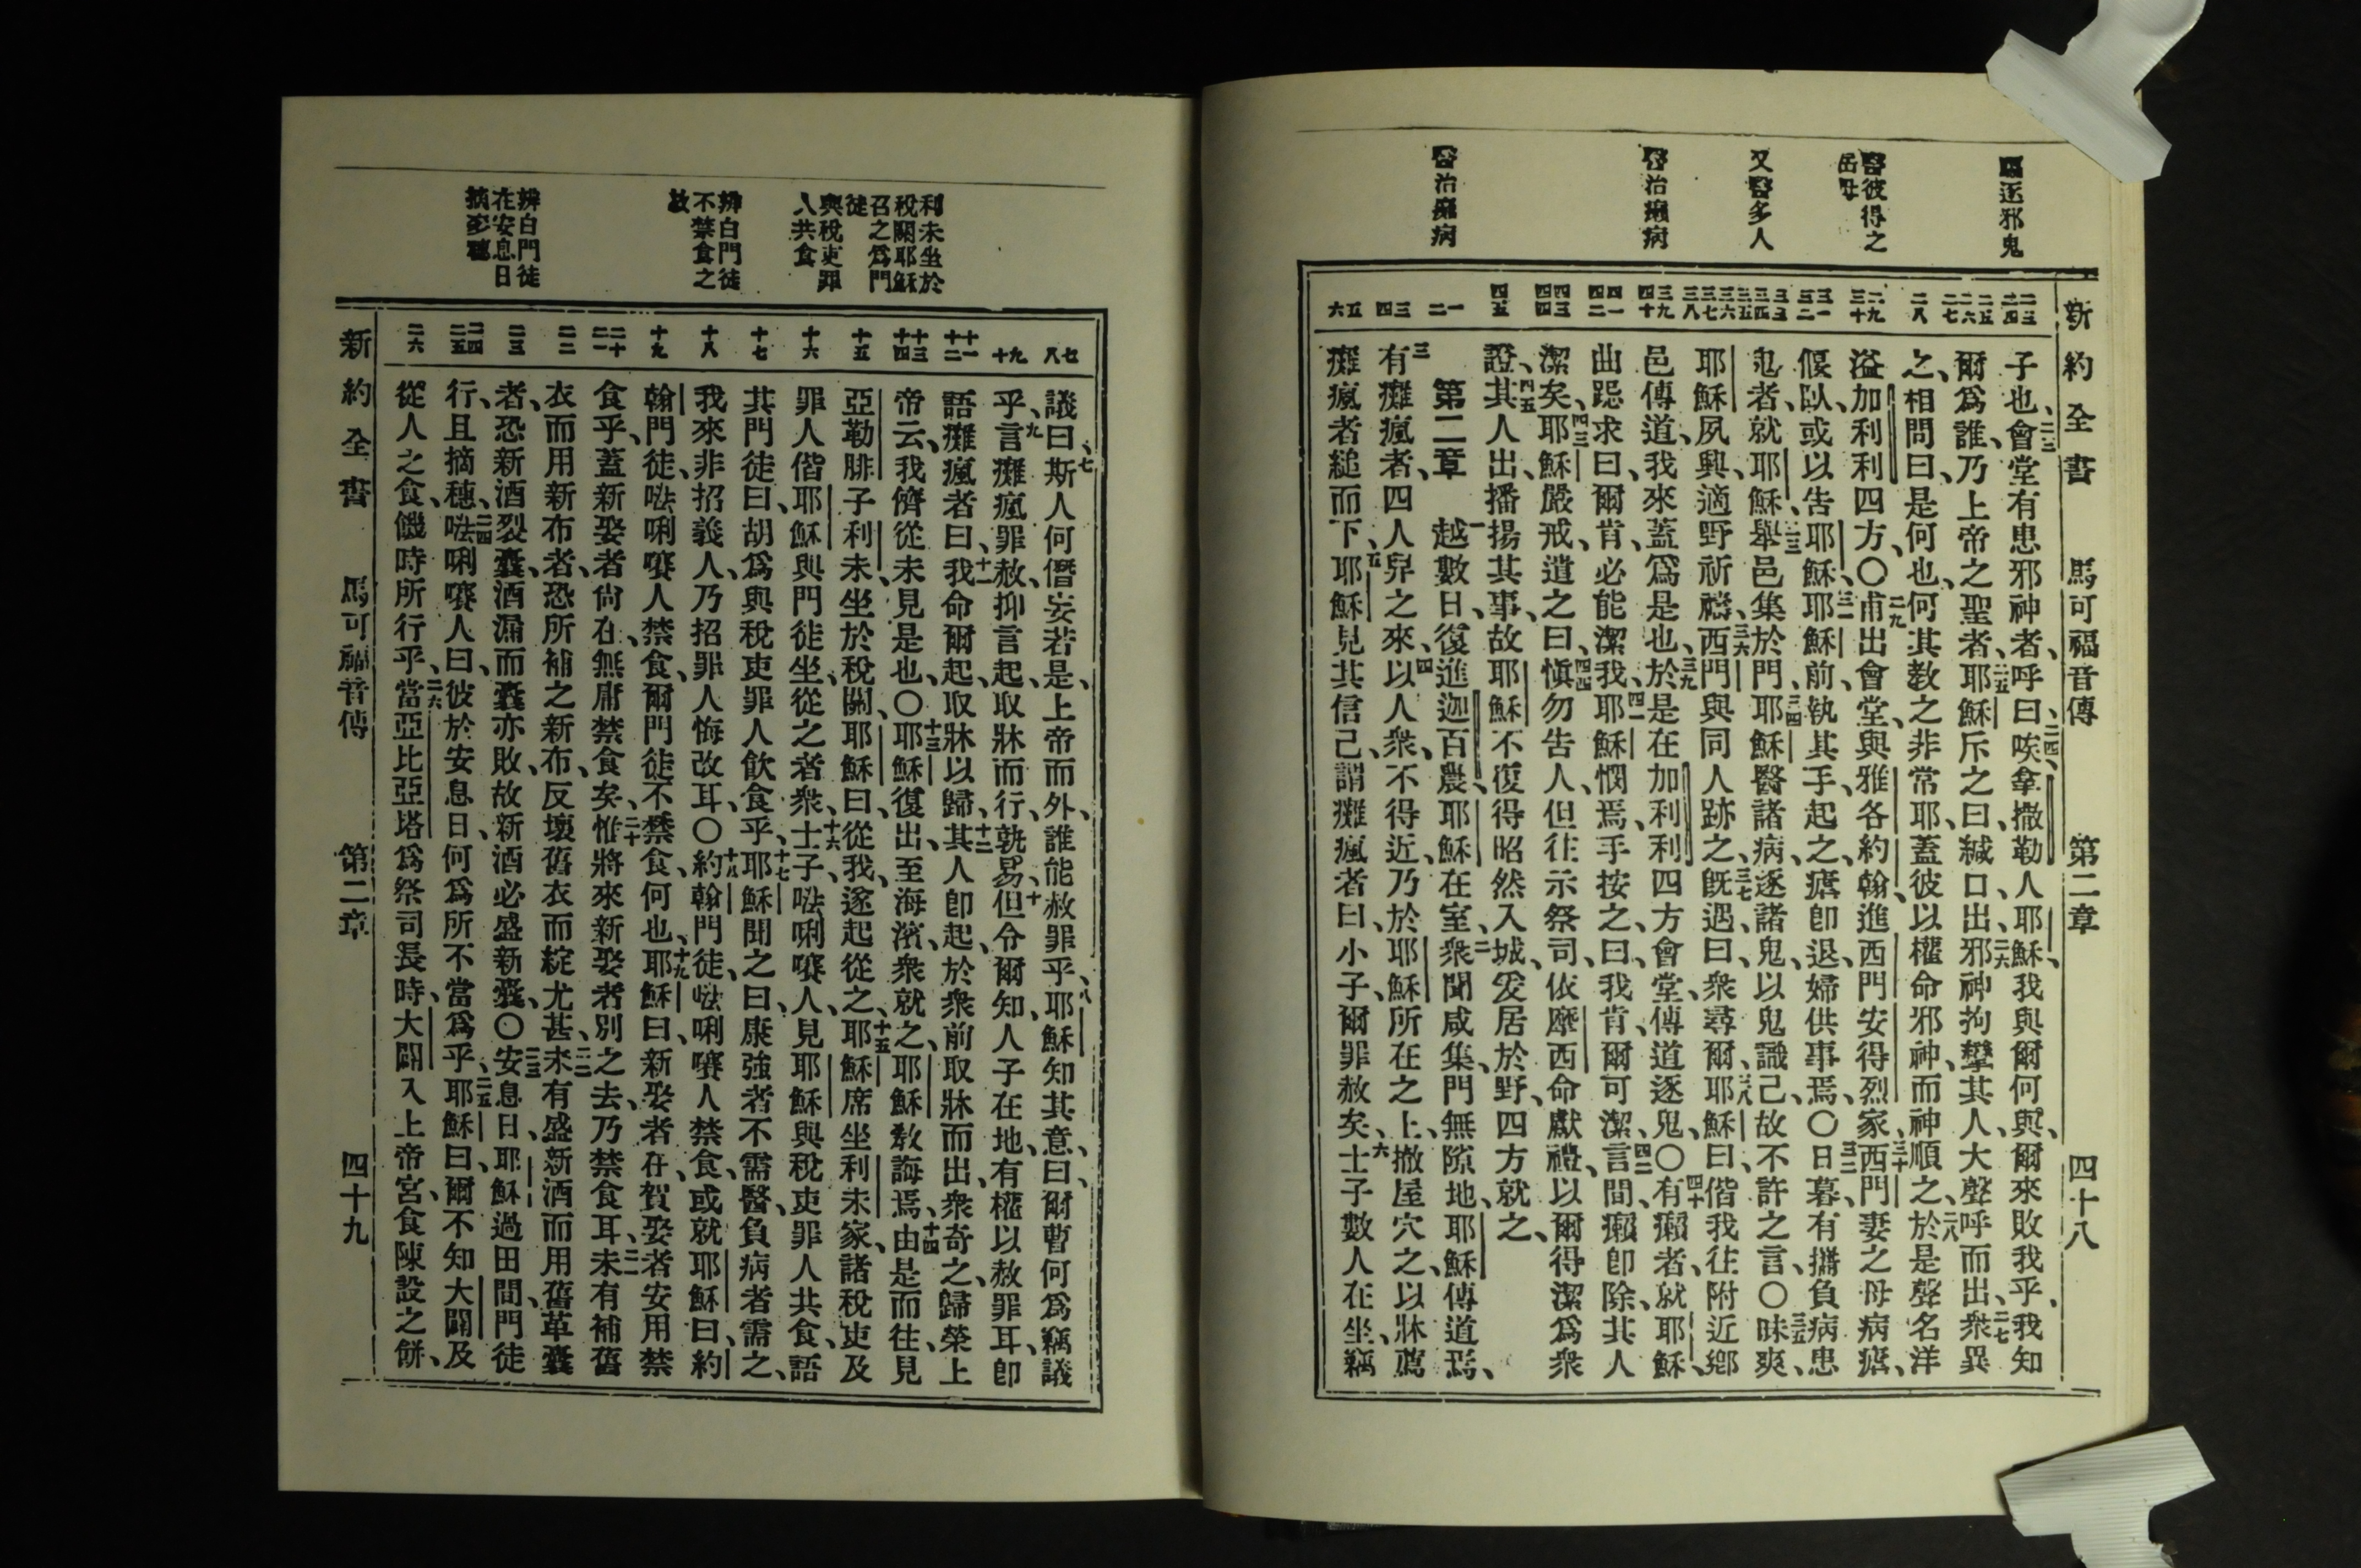 新約全書 馬可福音傳 第二章 四十八
驅逐邪鬼
醫彼得之
岳母
又醫多人
醫治癩病
醫治癱病
二三 二四 二五 二六 二七 二八 二九 三十 三一 三二 三三 三四 三五 三六 三七 三八 三九 四十 四一 四二 四三 四四 四五 一 二 三 四 五 六
子也、二三會堂有患邪神者、呼曰、二四唉、拿撒勒人耶穌、我與爾何與、爾來敗我乎、我知
爾爲誰、乃上帝之聖者、二五耶穌斥之曰、緘口、出、二六邪神拘攣其人、大聲呼而出、二七衆異
之、相問曰、是何也、何其教之非常耶、蓋彼以權命邪神、而神順之、二八於是聲名洋
溢加利利四方、〇二九甫出會堂、與雅各約翰、進西門安得烈家、三十西門妻之母病瘧、
偃臥、或以告耶穌、三一耶穌前、執其手起之、瘧卽退、婦供事焉、〇三二日暮、有攜負病患
鬼者、就耶穌、三三舉邑集於門、三四耶穌醫諸病、逐諸鬼、以鬼識己、故不許之言、〇三五昧爽、
耶穌夙興、適野祈禱、三六西門與同人跡之、三七旣遇、曰、衆尋爾、三八耶穌曰、偕我往附近鄉
邑傳道、我來蓋爲是也、三九於是在加利利四方會堂、傳道逐鬼、〇四十有癩者、就耶穌、
曲跽求曰、爾肯、必能潔我、四一耶穌憫焉、手按之曰、我肯、爾可潔、四二言間、癩卽除、其人
潔矣、四三耶穌嚴戒、遣之曰、四四愼勿告人、但往示祭司、依摩西命獻禮、以爾得潔爲衆
證、四五其人出、播揚其事、故耶穌不復得昭然入城、爰居於野、四方就之、
第二章 一越數日、復進迦百農、耶穌在室、二衆聞咸集、門無隙地、耶穌傳道焉、
三有癱瘋者、四人舁之來、四以人衆、不得近、乃於耶穌所在之上、撤屋穴之、以牀薦
癱瘋者縋而下、五耶穌見其信己、謂癱瘋者曰、小子、爾罪赦矣、六士子數人在坐、竊
利未坐於
稅關耶穌
召之爲門
徒
與稅吏罪
人共食
辨白門徒
不禁食之
故
辨白門徒
在安息日
摘麥穗
七 八 九 十 十一 十二 十三 十四 十五 十六 十七 十八 十九 二十 二一 二二 二三 二四 二五 二六
議曰、七斯人何僭妄若是、上帝而外、誰能赦罪乎、八耶穌知其意、曰、爾曹何爲竊議
乎、九言癱瘋罪赦、抑言起、取牀而行、孰易、十但令爾知、人子在地、有權以赦罪耳、卽
語癱瘋者曰、十一我命爾起、取牀以歸、十二其人卽起、於衆前取牀而出、衆奇之、歸榮上
帝云、我儕從未見是也、〇十三耶穌復出、至海濱、衆就之、耶穌教誨焉、十四由是而往、見
亞勒腓子利未、坐於稅關、耶穌曰、從我、遂起從之、十五耶穌席坐利未家、諸稅吏及
罪人、偕耶穌與門徒坐、從之者衆、十六士子、㗲唎㘔人、見耶穌與稅吏罪人共食、語
其門徒曰、胡爲與稅吏罪人飲食乎、十七耶穌聞之曰、康強者不需醫、負病者需之、
我來非招義人、乃招罪人悔改耳、〇十八約翰門徒、㗲唎㘔人禁食、或就耶穌曰、約
翰門徒、㗲唎㘔人禁食、爾門徒不禁食、何也、十九耶穌曰、新娶者在、賀娶者安用禁
食乎、蓋新娶者尙在、無庸禁食矣、二十惟將來新娶者別之去、乃禁食耳、二一未有補舊
衣而用新布者、恐所補之新布、反壞舊衣而綻尤甚、二二未有盛新酒而用舊革囊
者、恐新酒裂囊、酒漏而囊亦敗、故新酒必盛新囊、〇二三安息日、耶穌過田間、門徒
行、且摘穗、二四㗲唎㘔人曰、彼於安息日、何爲所不當爲乎、二五耶穌曰、爾不知大闢及
從人之食、饑時所行乎、二六當亞比亞塔爲祭司長時、大闢入上帝宮、食陳設之餅、
新約全書 馬可福音傳 第二章 四十九